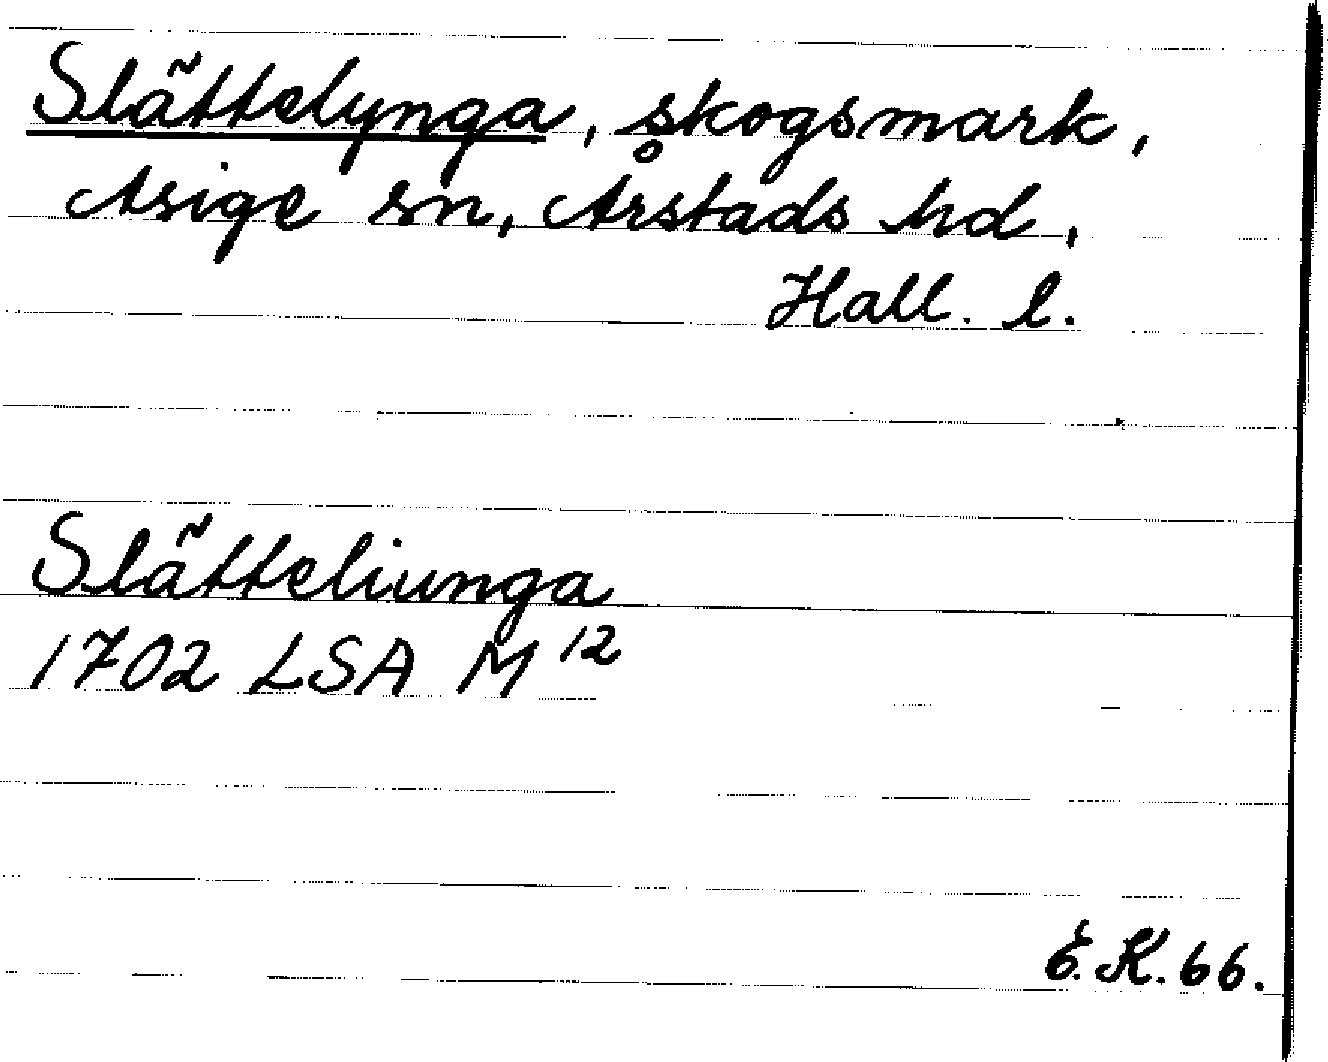 Slättelynga, skogsmark,
Asige sn, Årstads hd,
Hall. l.
Slätteliunga
1702 LSA M 12
E.K. 66.